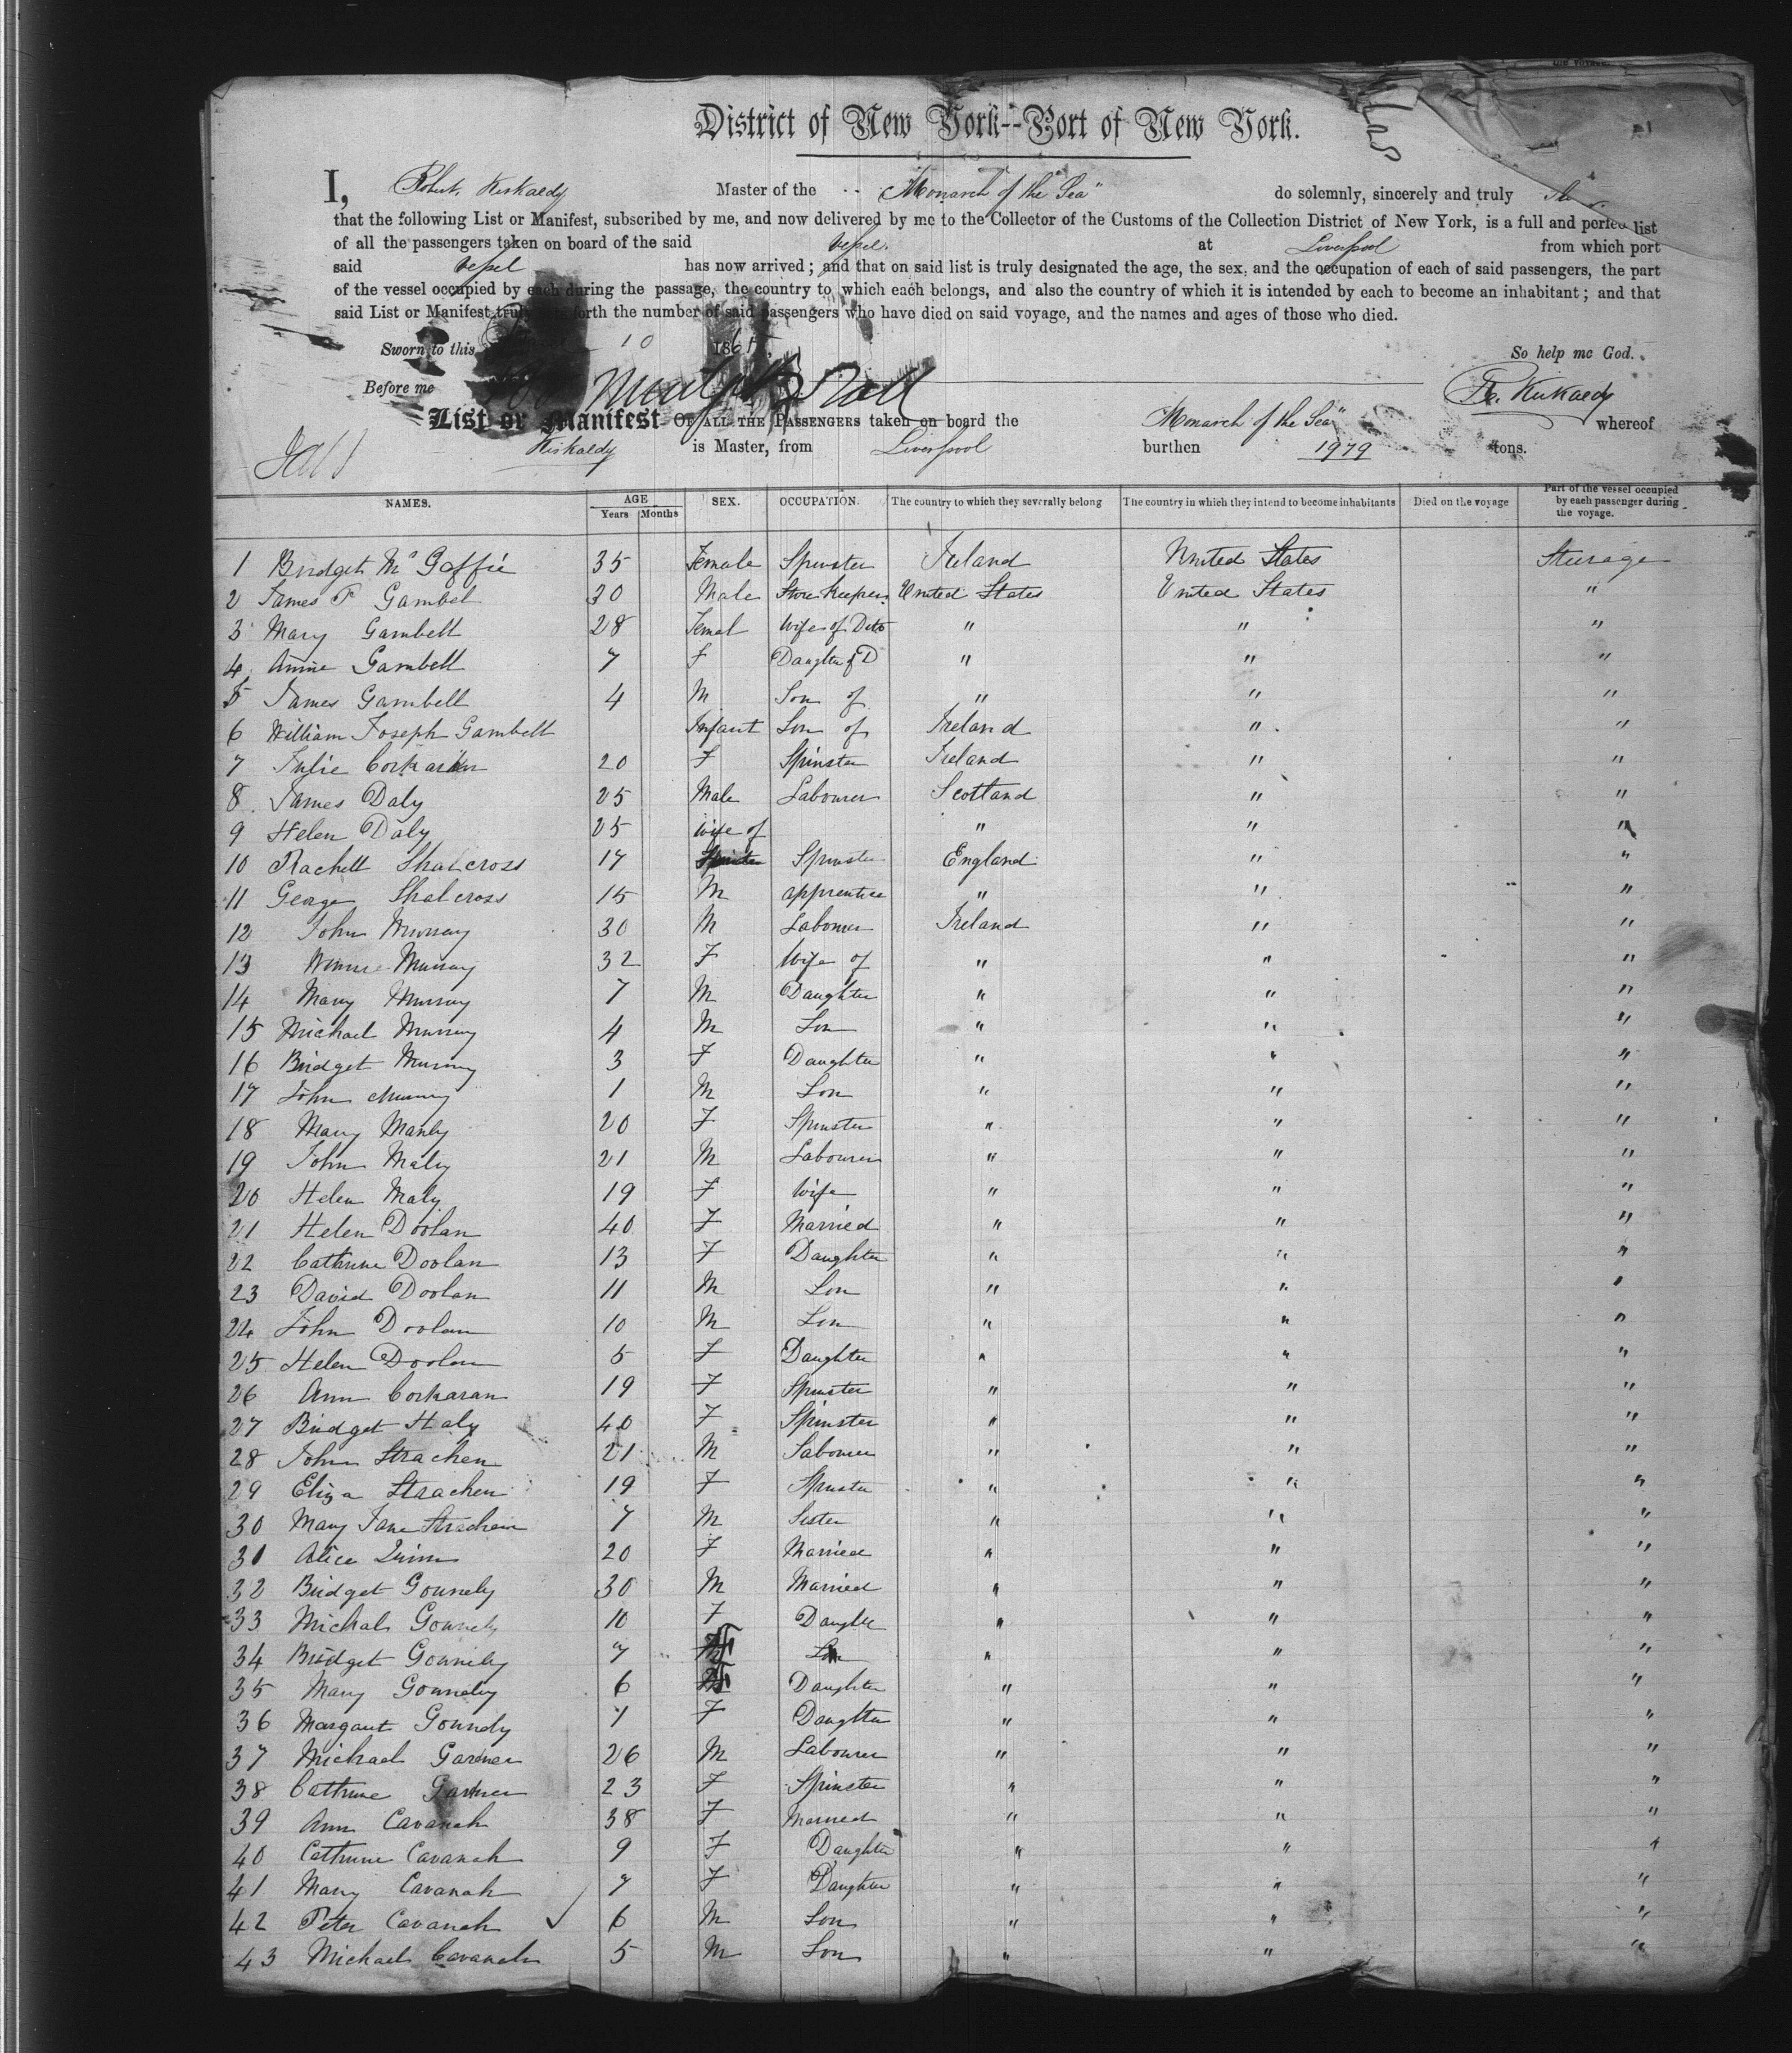 District of New York--Port of New York.
I, Robert Kirkaldy Master of the "Monarch of the Sea" do solemnly, sincerely and truly
that the following List or Manifest, subscribed by me, and now delivered by me to the Collector of the Customs of the Collection District of New York, is a full and perfect list
of all the passengers taken on board of the said vessel at Liverpool from which port
said vessel has now arrived; and that on said list is truly designated the age, the sex, and the occupation of each of said passengers, the part
of the vessel occupied by each during the passage, the country to which each belongs, and also the country of which it is intended by each to become an inhabitant; and that
said List or Manifest truly sets forth the number of said passengers who have died on said voyage, and the names and ages of those who died.
Sworn to this 10 186 So help me God.
Before me R. Kirkaldy
List or Manifest OF ALL THE PASSENGERS taken on board the "Monarch of the Sea" whereof
Kirkaldy is Master, from Liverpool burthen 1979 tons.
NAMES. AGE Years Months SEX. OCCUPATION. The country to which they severally belong The country in which they intend to become inhabitants Died on the voyage Part of the vessel occupied by each passenger during the voyage.
1 Bridget Mc Goffie 35 Female Spinster Ireland United States Steerage
2 James P Gambel 30 Male Store Keeper United States United States "
3 Mary Gambell 28 Femal Wife of Ditto " " "
4 Annie Gambell 7 F Daughter of D " " "
5 James Gambell 4 M Son of " " "
6 William Joseph Gambell Infant Son of Ireland " "
7 Julie Corkaran 20 F Spinster Ireland " "
8 James Daly 25 Male Labourer Scotland " "
9 Helen Daly 25 Wife of " " "
10 Rachell Shalcross 17 Spinster Spinster England " "
11 George Shalcross 15 M apprentice " " "
12 John Murray 30 M Labourer Ireland " "
13 Winnie Murray 32 F Wife of " " "
14 Mary Murray 7 M Daughter " " "
15 Michael Murray 4 M Son " " "
16 Bridget Murray 3 F Daughter " " "
17 John Murray 1 M Son " " "
18 Mary Manly 20 F Spinster " " "
19 John Maly 21 M Labourer " " "
20 Helen Maly 19 F Wife " " "
21 Helen Doolan 40 F Married " " "
22 Cathrine Doolan 13 F Daughter " " "
23 David Doolan 11 M Son " " "
24 John Doolan 10 M Son " " "
25 Helen Doolan 5 F Daughter " " "
26 Ann Corkaran 19 F Spinster " " "
27 Bridget Haly 40 F Spinster " " "
28 John Strachen 21 M Labourer " " "
29 Eliza Strachen 19 F Spinster " " "
30 Mary Jane Strachen 7 M Sister " " "
31 Alice Quinn 20 F Married " " "
32 Bridget Gonnely 30 M Married " " "
33 Michal Gonnely 10 F Daughter " " "
34 Bridget Gonnely 7 F Son " " "
35 Mary Gonnely 6 F Daughter " " "
36 Margaut Gonnely 1 F Daughter " " "
37 Michael Garner 26 M Labourer " " "
38 Cathrine Garner 23 F Spinster " " "
39 Ann Cavanah 38 F Married " " "
40 Cathrine Cavanah 9 F Daughter " " "
41 Mary Cavanah 7 F Daughter " " "
42 Peter Cavanah 6 M Son " " "
43 Michael Cavanah 5 M Son " " "